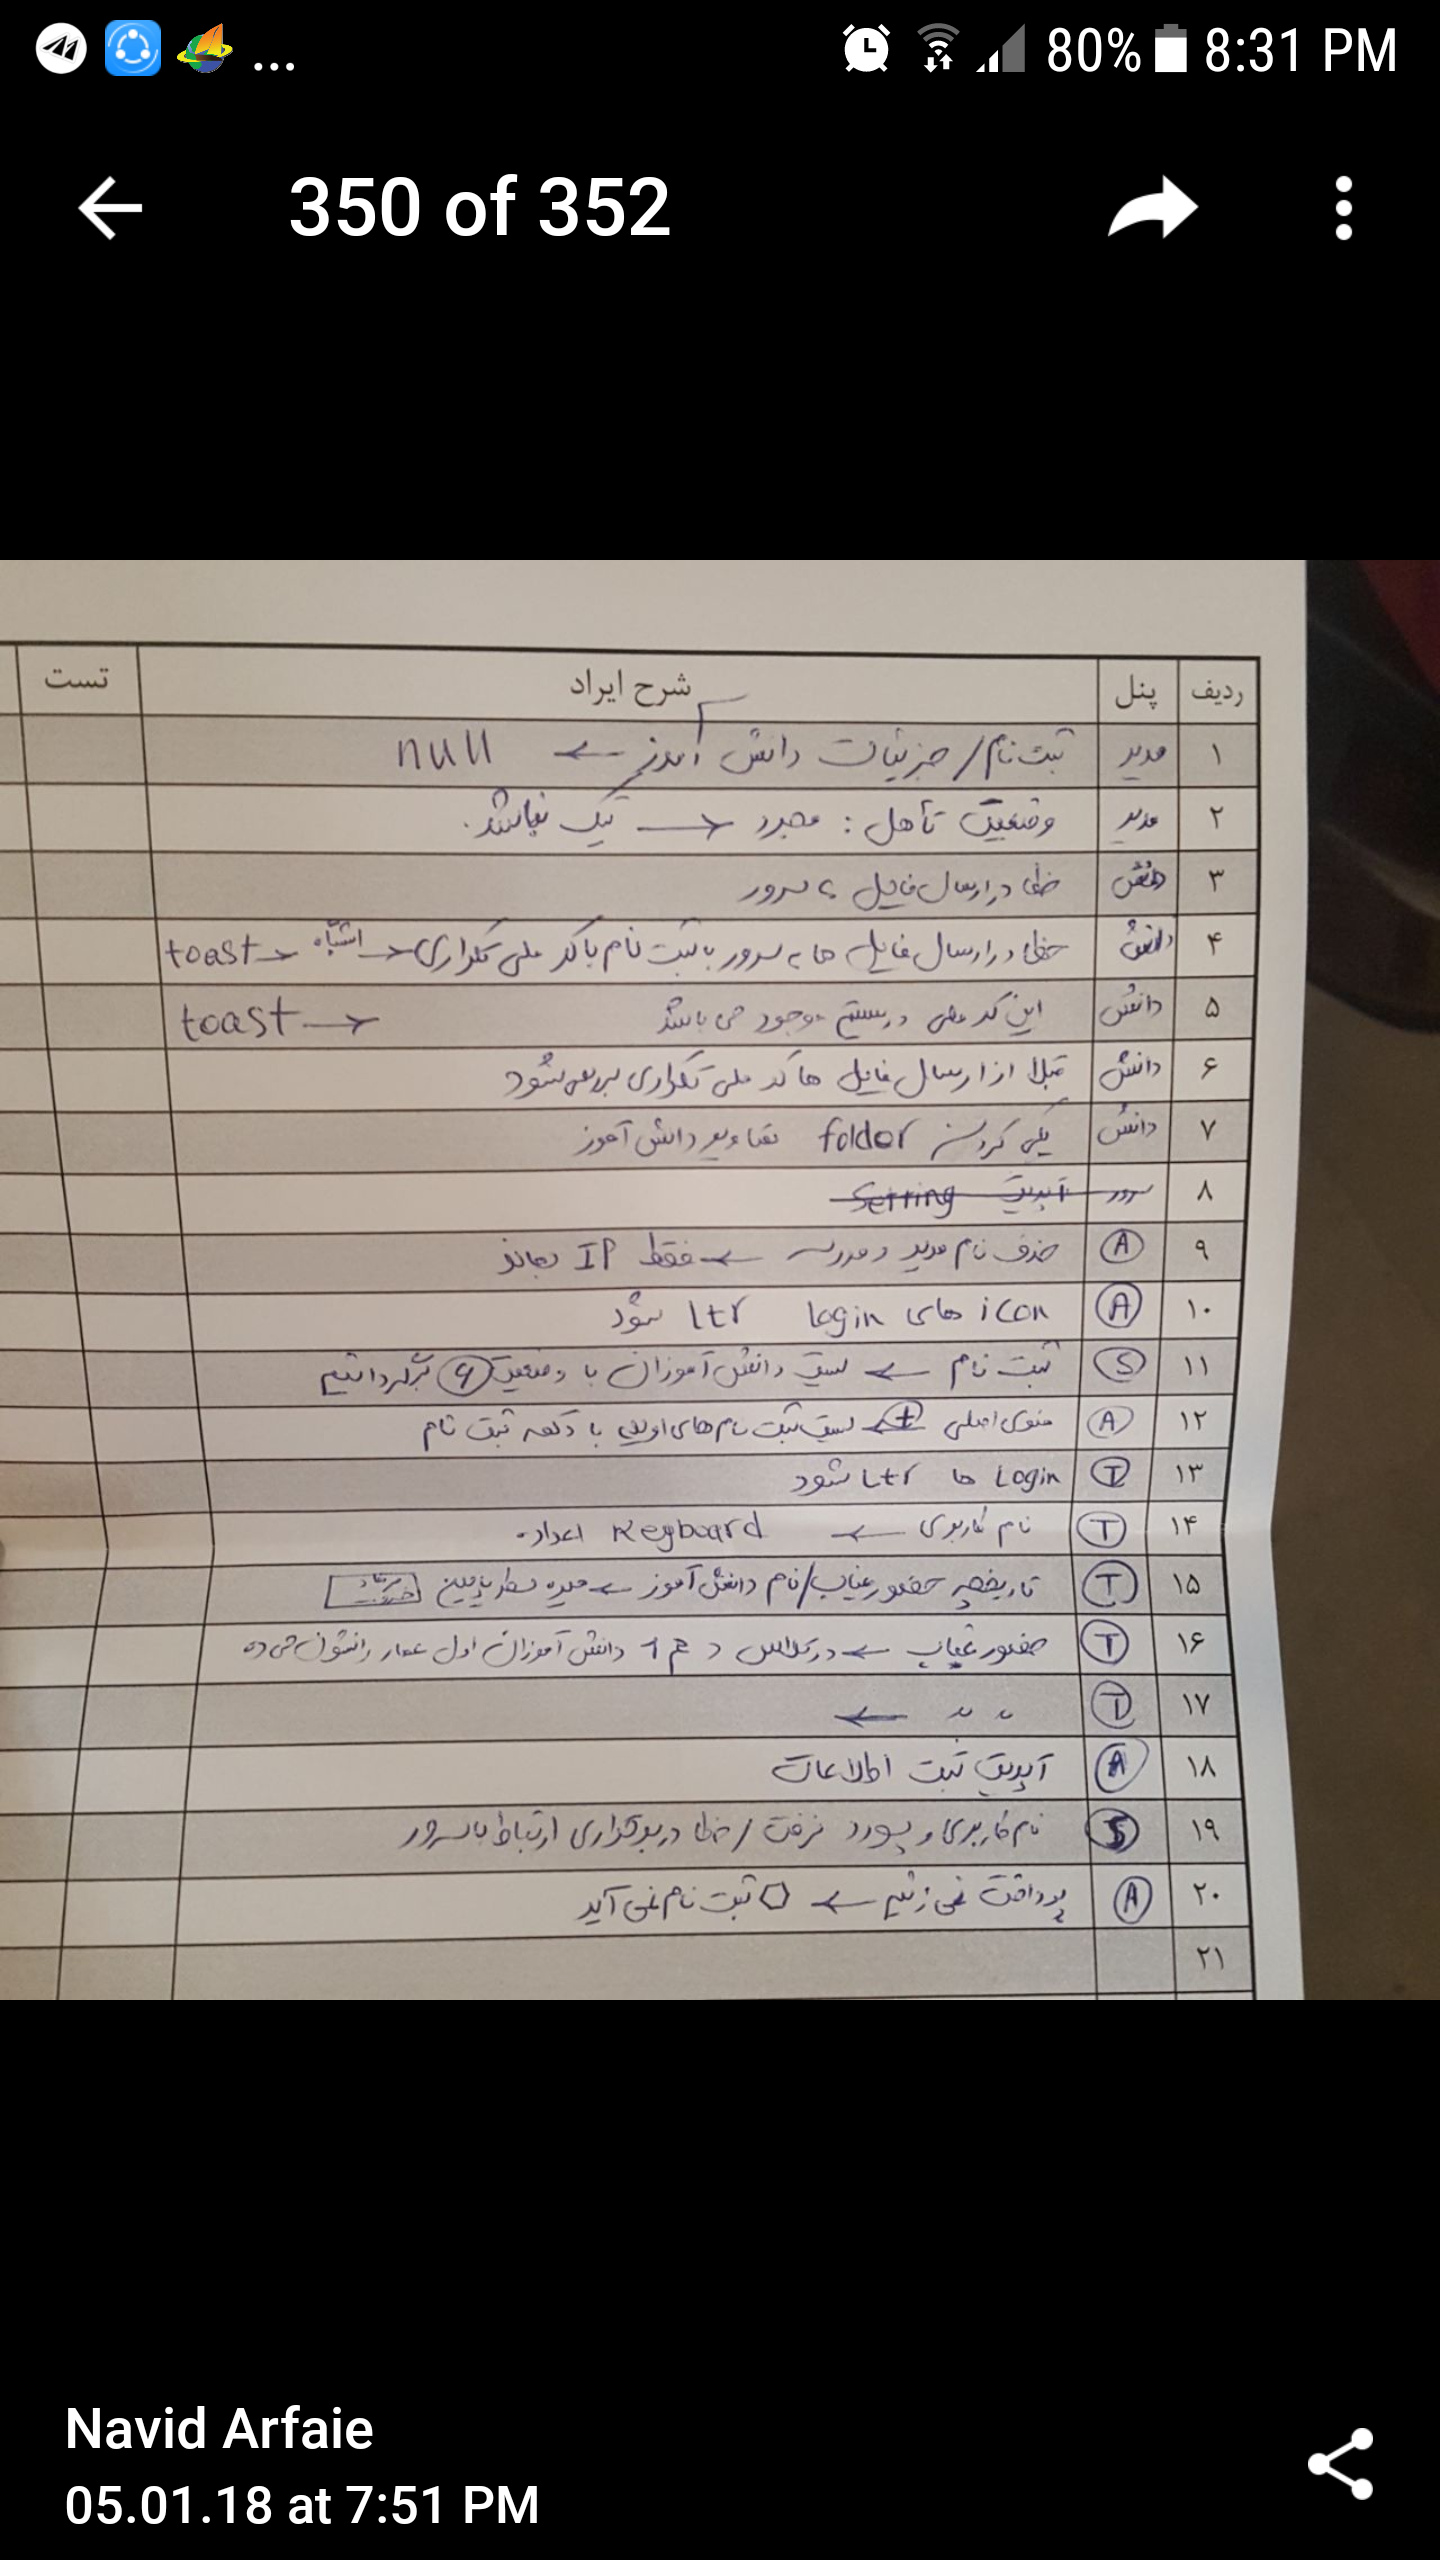 ... 80% 8:31 PM
350 of 352
ردیف پنل شرح ایراد تست
۱ مدیر ثبت نام / جزئیات دانش آموز ← null
۲ مدیر وضعیت تأهل : مجرد → تیک نباشد.
۳ دانش خطا در ارسال فایل به سرور
۴ دانش خطا در ارسال فایل ها به سرور با ثبت نام با کد ملی تکراری → اشتباه → toast
۵ دانش این کد ملی در سیستم موجود می باشد → toast
۶ دانش قبلا از ارسال فایل ها کد ملی تکراری بررسی شود
۷ دانش یکی کردن folder تصاویر دانش آموز
۸ سرور آپدیت Setting
۹ A حذف نام مدیر و مدرسه ← فقط IP بماند
۱۰ A icon های login ltr شود
۱۱ S ثبت نام ← لیست دانش آموزان با وضعیت ۶ برگردانیم
۱۲ A منوی اصلی ← + لیست ثبت نام های اولیه با دکمه ثبت نام
۱۳ T Login ها Ltr شود
۱۴ T نام کاربری ← Keyboard اعداد
۱۵ T تاریخچه حضور غیاب / نام دانش آموز ← میره سطر پایین
۱۶ T حضور غیاب ← در کلاس دانش آموزان اول عمار رانشون می ده
۱۷ T 〃 〃 ←
۱۸ A آپدیت ثبت اطلاعات
۱۹ S نام کاربری و پسورد نرفت / خطا در برقراری ارتباط با سرور
۲۰ A پرداخت نمی زنیم ← ثبت نام نمی آید
۲۱
Navid Arfaie
05.01.18 at 7:51 PM